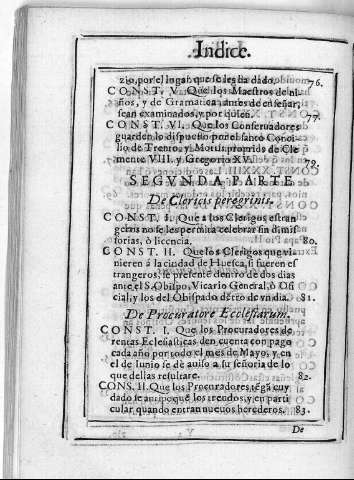 Indice.
zio, por el lugar que se les ha dado. 76.
CONST. V. Que los Maestros de ni-
ños, y de Gramatica, antes de enseñar,
sean examinados, y por quien. 77.
CONST. VI. Que los Conseruadores
guarden lo dispuesto por el santo Conci-
lio de Trento, y Motus proprios de Cle
mente VIII. y Gregorio XV. 79.
SEGVNDA PARTE
De Clericis peregrinis.
CONST. I. Que a los Clerigos estran
geros no se les permita celebrar sin dimis-
sorias, ò licencia. 80.
CONST. II. Que los Clerigos que vi-
nieren à la ciudad de Huesca, si fueren es
trangeros, se presente dentro de dos dias
ante el S. Obispo, Vicario General, ò Ofi
cial, y los del Obispado dẽtro de vn dia. 81.
De Procuratore Ecclesiarum.
CONST. I. Que los Procuradores de
rentas Eclesiasticas den cuenta con pago
cada año por todo el mes de Mayo, y en
el de Iunio se de auiso a su señoria de lo
que dellas resultare. 82.
CONS. II. Que los Procuradores tẽgã cuy
dado se antipoquẽ los treudos, y en parti
cular quando entran nueuos herederos. 83.
De